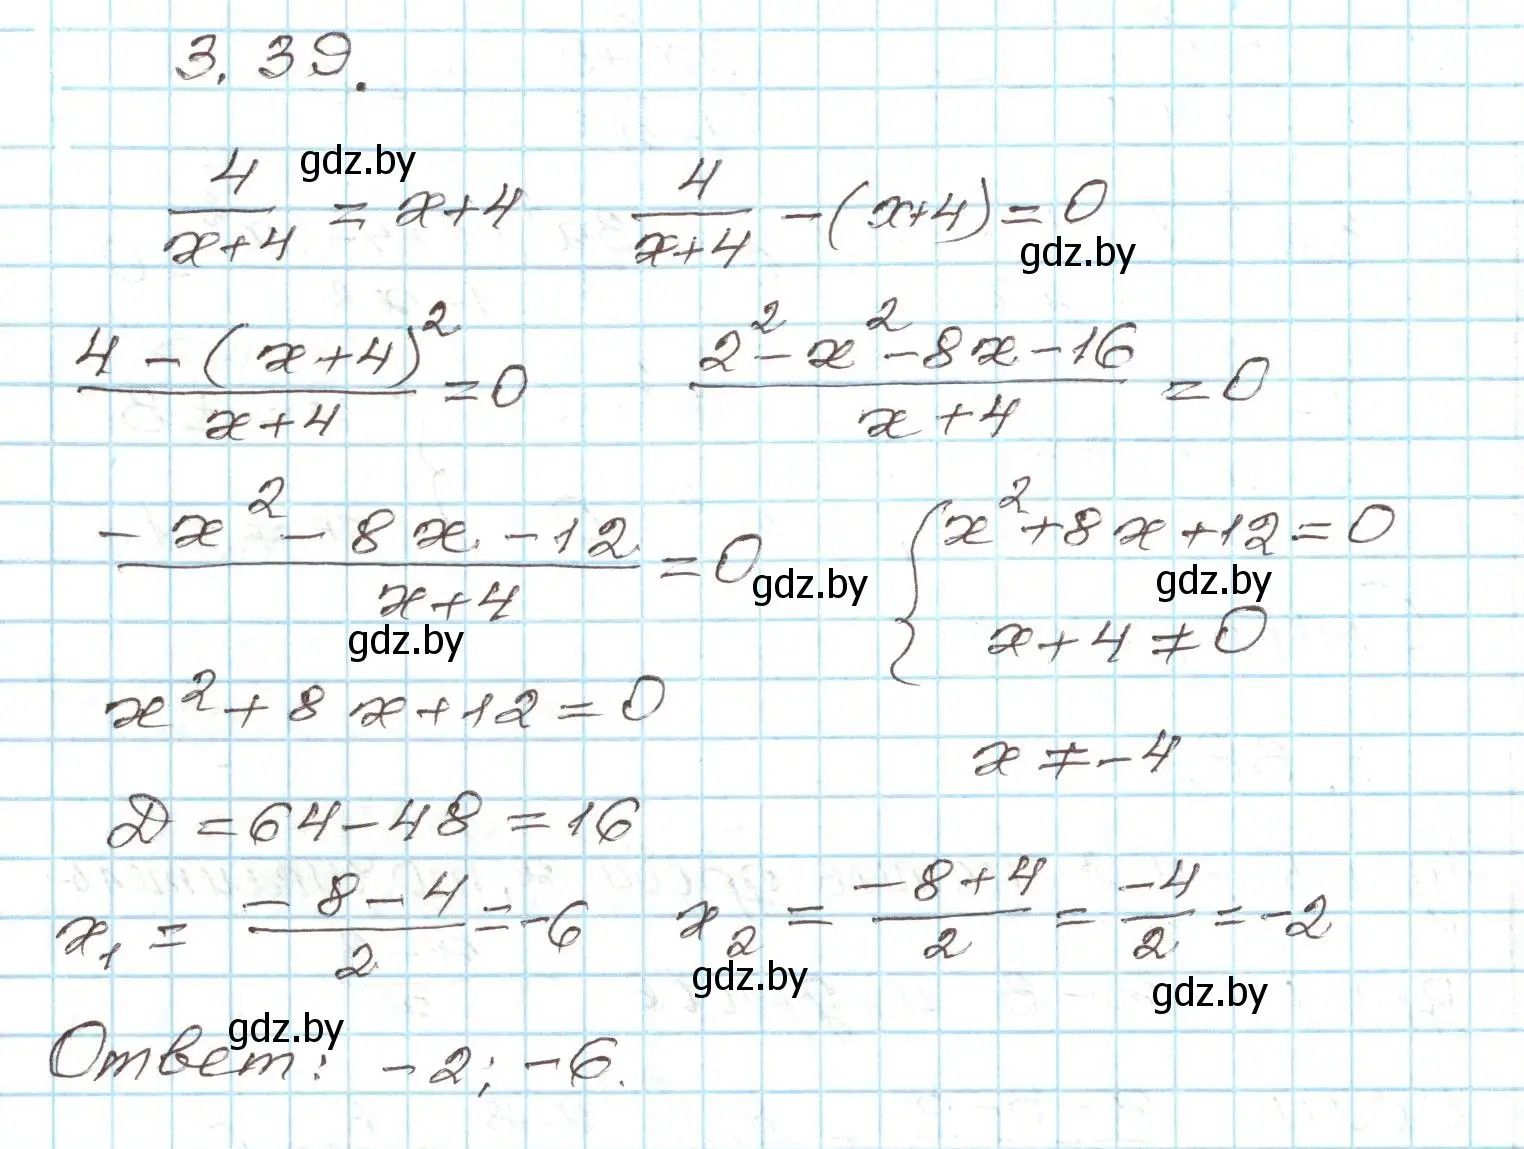 3.39.
4/(x+4) = x+4    4/(x+4) - (x+4) = 0
gdz.by
gdz.by
(4 - (x+4)²)/(x+4) = 0    (2² - x² - 8x - 16)/(x+4) = 0
(-x² - 8x - 12)/(x+4) = 0    { x² + 8x + 12 = 0
gdz.by
gdz.by
x+4 ≠ 0
gdz.by
x² + 8x + 12 = 0
x ≠ -4
Д = 64 - 48 = 16
x₁ = (-8-4)/2 = -6    x₂ = (-8+4)/2 = -4/2 = -2
gdz.by
gdz.by
gdz.by
Ответ: -2; -6.